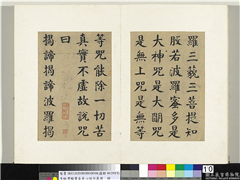 羅三藐三菩提知
般若波羅蜜多是
大神咒是大明咒
是無上咒是無等
等咒能除一切苦
真實不虛故說咒
曰
揭諦揭諦波羅揭